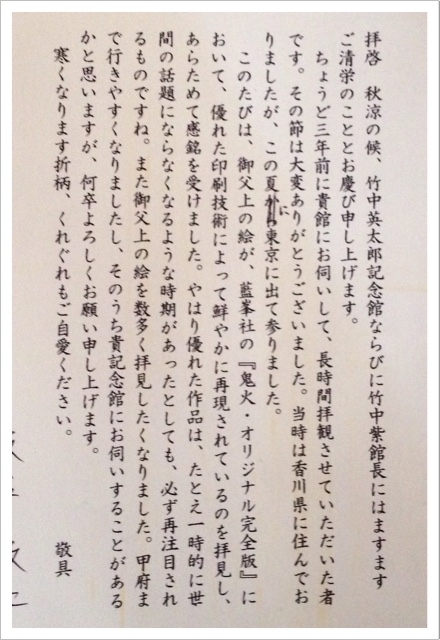 拝啓　秋涼の候、竹中英太郎記念館ならびに竹中紫館長にはますます
ご清栄のこととお慶び申し上げます。
ちょうど三年前に貴館にお伺いして、長時間拝観させていただいた者
です。その節は大変ありがとうございました。当時は香川県に住んでお
りましたが、この夏に東京に出て参りました。
このたびは、御父上の絵が、藍峯社の『鬼火・オリジナル完全版』に
おいて、優れた印刷技術によって鮮やかに再現されているのを拝見し、
あらためて感銘を受けました。やはり優れた作品は、たとえ一時的に世
間の話題にならなくなるような時期があったとしても、必ず再注目され
るものですね。また御父上の絵を数多く拝見したくなりました。甲府ま
で行きやすくなりましたし、そのうち貴記念館にお伺いすることがある
かと思いますが、何卒よろしくお願い申し上げます。
寒くなります折柄、くれぐれもご自愛ください。
敬具